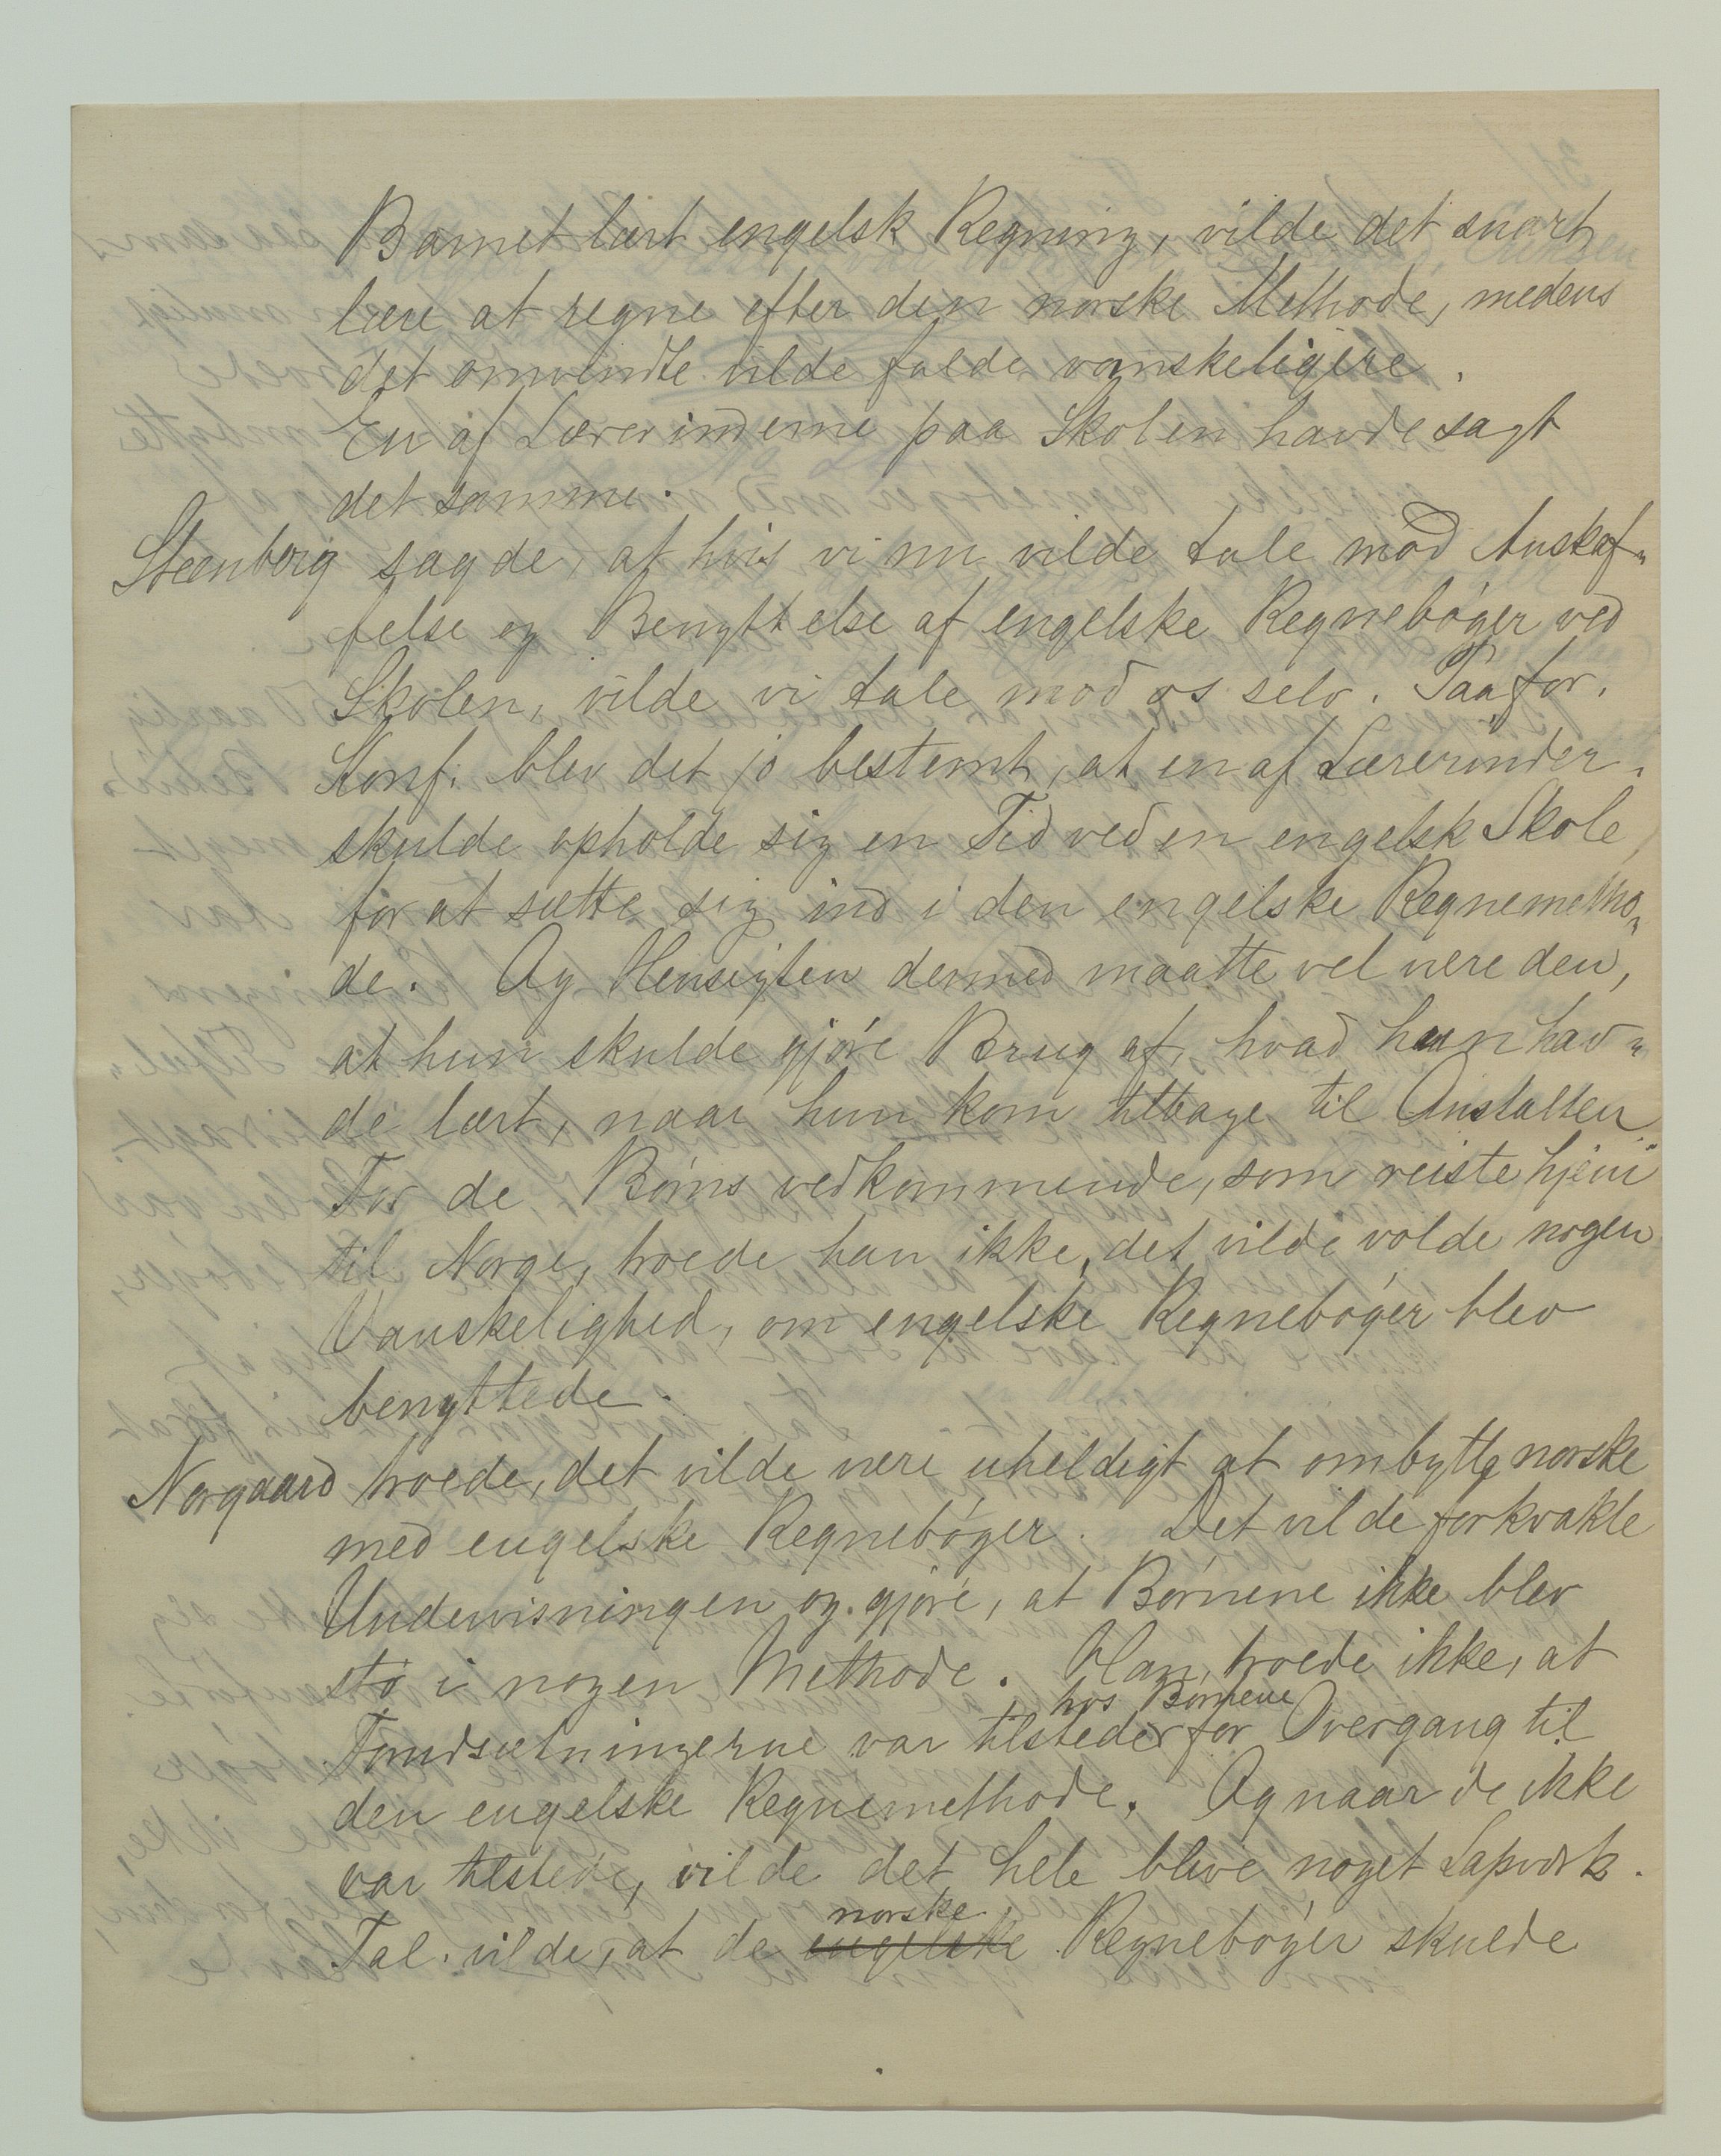 Barnet lært engelsk Regning, vilde det snart
lære at regne efter den norske Methode, medens
det omvendte vilde falde vanskeligere.
En af Lærerinderne paa Skolen havde sagt
det samme.
Steenberg sagde, at hvis vi nu vilde tale mod Anskaf-
felse og Benyttelse af engelske Regnebøger ved
Skolen, vilde vi tale mod os selv. Paa for.
Konf. blev det jo bestemt, at en af Lærerinder.
skulde opholde sig en Tid ved en engelsk Skole
for at sætte sig ind i den engelske Regnemetho-
de. Og Hensigten dermed maatte vel være den,
at hun skulde gjøre Brug af, hvad hun hav-
de lært, naar hun kom tilbage til Anstalten.
For de Børns vedkommende, som reiste hjem
til Norge, troede han ikke, det vilde volde nogen
Vanskelighed, om engelske Regnebøger blev
benyttede.
Norgaard troede, det vilde være uheldigt at ombytte norske
med engelske Regnebøger. Det vilde forkvakle
Undervisningen og gjøre, at Børnene ikke blev
stø i nogen Methode. Han troede ikke, at
hos Børnene
Forudsætningerne var tilstede for Overgang til
den engelske Regnemethode. Og naar de ikke
var tilstede, vilde det hele blive noget Lapværk.
norske
Tal. vilde, at de engelske Regnebøger skulde